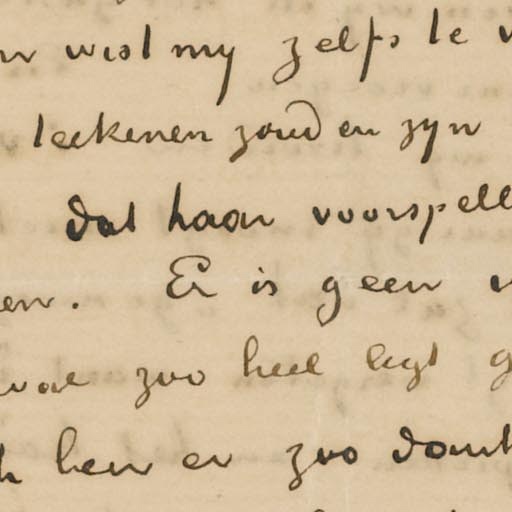 wist my zelfs te
teekenen zouden zyn
dat haar voorspell
en. Er is geen
wat zoo heel legt g
k ben er zoo dank